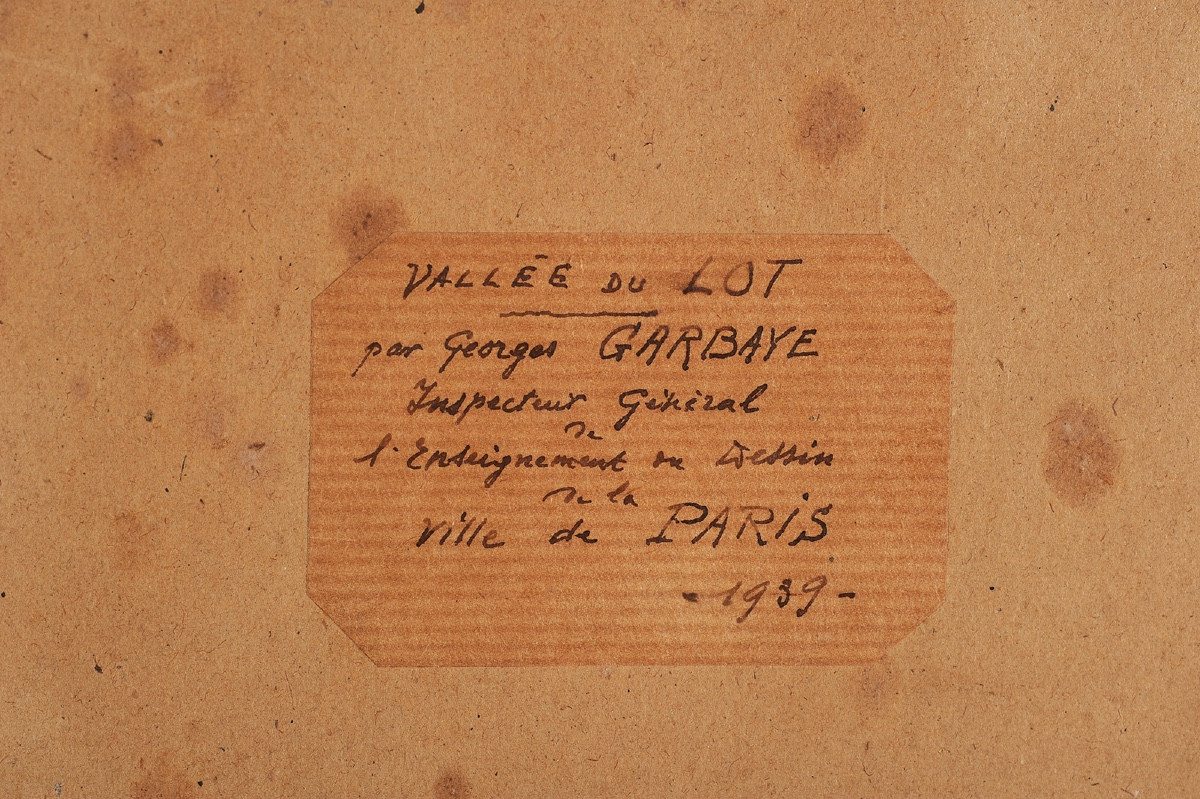 VALLÉE DU LOT
par Georges GARBAYE
Inspecteur Général
de
l'Enseignement du Dessin
de la
Ville de PARIS
- 1939 -